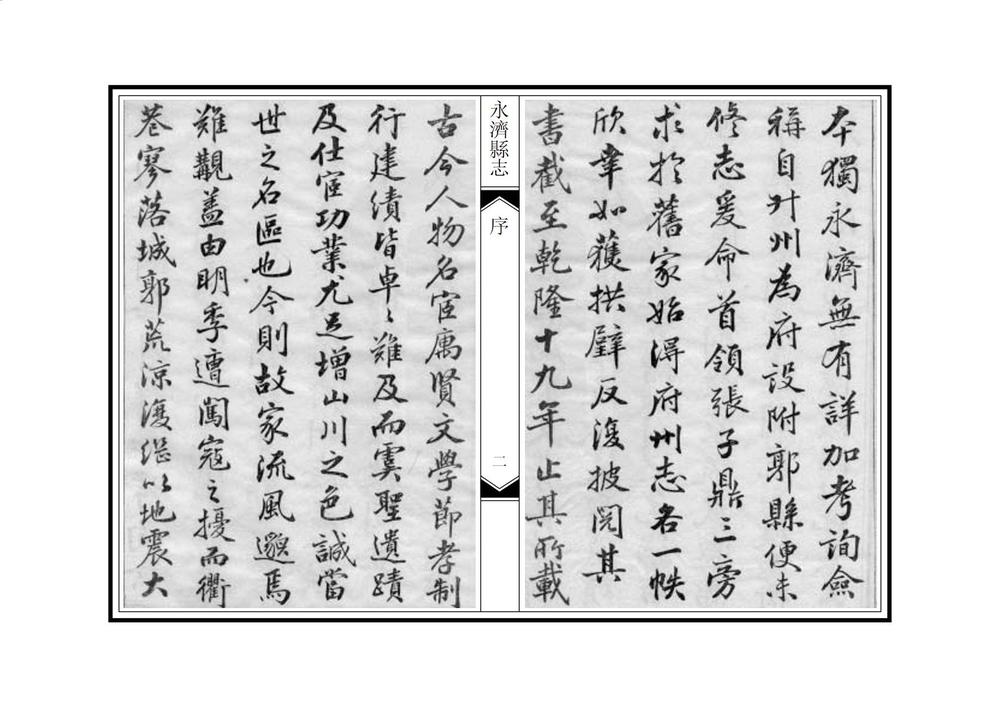 本獨永濟無有詳加考詢僉
稱自升州為府設附郭縣便未
修志爰命首領張子鼎三旁
求於舊家始得府州志各一帙
欣幸如獲拱璧反復披閱其
書截至乾隆十九年止其所載
永濟縣志
序
二
古今人物名宦寓賢文學節孝制
行建績皆卓〻難及而虞聖遺蹟
及仕宦功業尤足增山川之色誠當
世之名區也今則故家流風邈焉
難觀蓋由明季遭闖寇之擾而衢
巷寥落城郭荒涼復繼以地震大